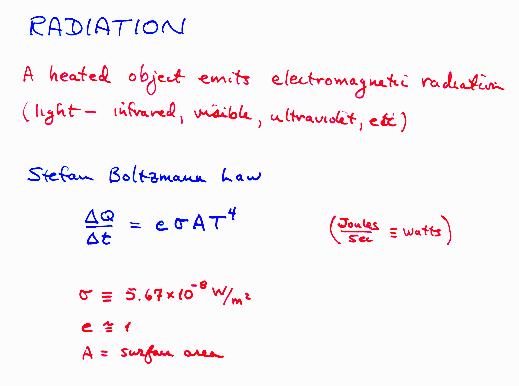 RADIATION
A heated object emits electromagnetic radiation
(light – infrared, visible, ultraviolet, etc)
Stefan Boltzmann Law
ΔQ/Δt = e σ A T⁴ (Joules/sec ≡ watts)
σ ≡ 5.67×10⁻⁸ W/m²
e ≅ 1
A = surface area